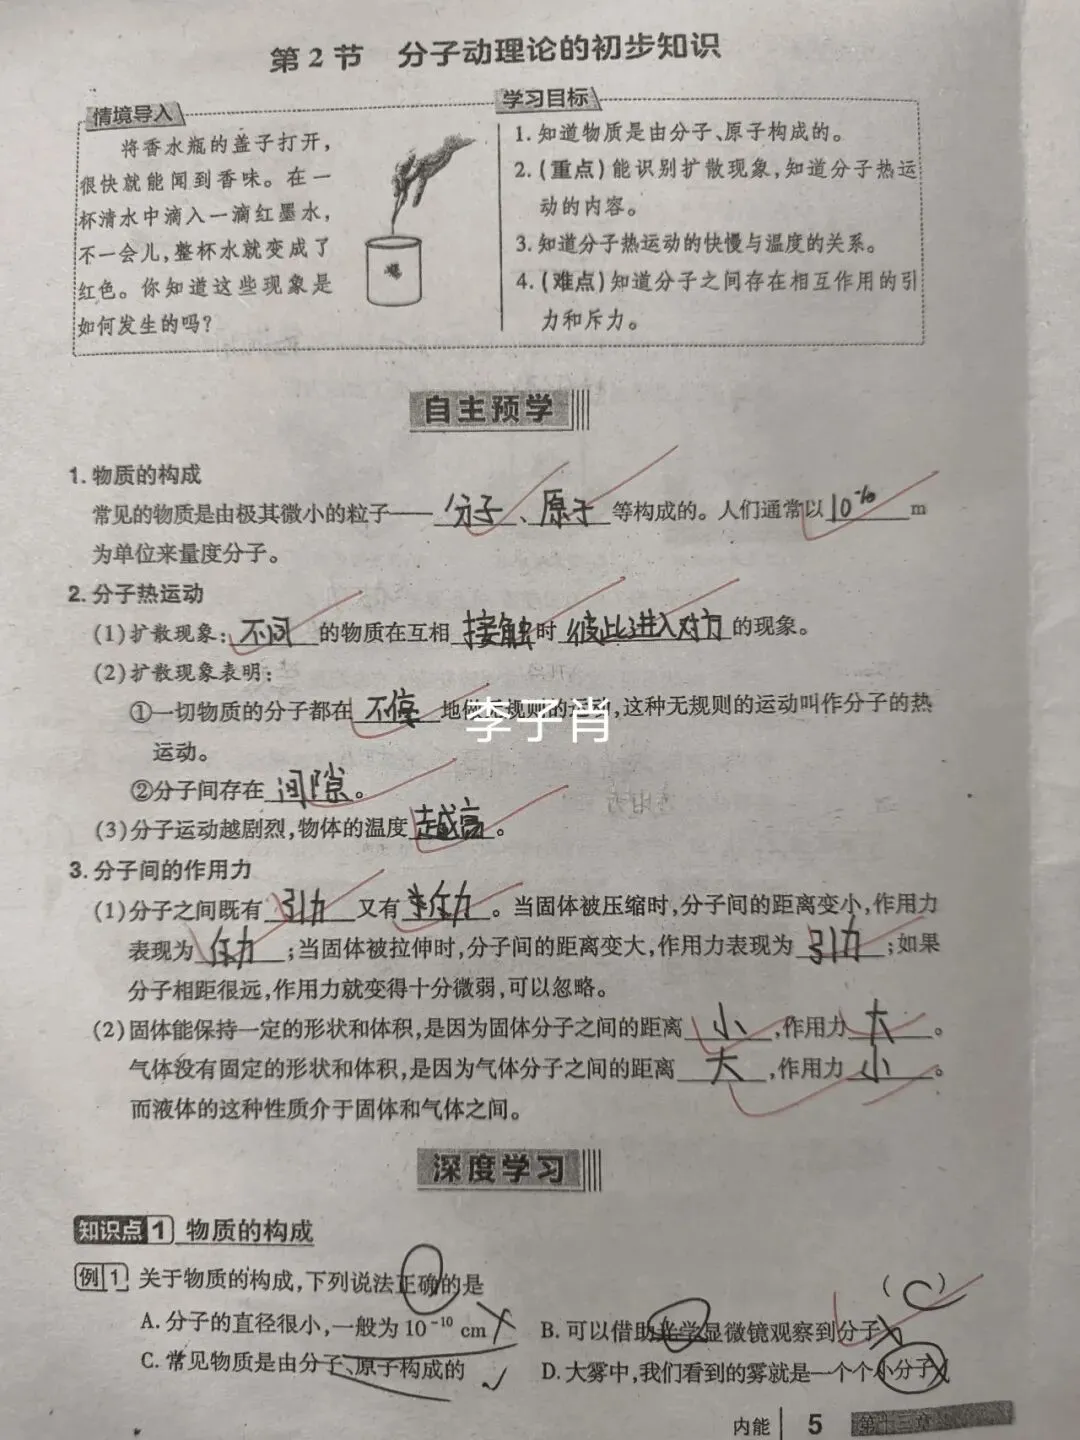 第2节 分子动理论的初步知识
情境导入
将香水瓶的盖子打开,
很快就能闻到香味。在一
杯清水中滴入一滴红墨水,
不一会儿,整杯水就变成了
红色。你知道这些现象是
如何发生的吗?
学习目标
1. 知道物质是由分子、原子构成的。
2. (重点)能识别扩散现象,知道分子热运
动的内容。
3. 知道分子热运动的快慢与温度的关系。
4. (难点)知道分子之间存在相互作用的引
力和斥力。
自主预学
1. 物质的构成
常见的物质是由极其微小的粒子——分子、原子等构成的。人们通常以10⁻¹⁰m
为单位来量度分子。
2. 分子热运动
(1)扩散现象:不同的物质在互相接触时彼此进入对方的现象。
(2)扩散现象表明:
①一切物质的分子都在不停地做无规则的运动,这种无规则的运动叫作分子的热
李子肖
运动。
②分子间存在间隙。
(3)分子运动越剧烈,物体的温度越高。
3. 分子间的作用力
(1)分子之间既有引力又有斥力。当固体被压缩时,分子间的距离变小,作用力
表现为斥力;当固体被拉伸时,分子间的距离变大,作用力表现为引力;如果
分子相距很远,作用力就变得十分微弱,可以忽略。
(2)固体能保持一定的形状和体积,是因为固体分子之间的距离小,作用力大。
气体没有固定的形状和体积,是因为气体分子之间的距离大,作用力小。
而液体的这种性质介于固体和气体之间。
深度学习
知识点1 物质的构成
例1 关于物质的构成,下列说法正确的是 (C)
A. 分子的直径很小,一般为10⁻¹⁰ cm B. 可以借助光学显微镜观察到分子
C. 常见物质是由分子、原子构成的 D. 大雾中,我们看到的雾就是一个个小分子
内能 5 第十三章